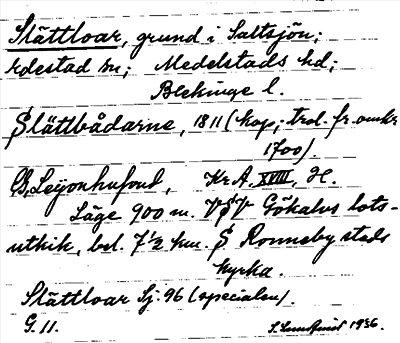 Slättloar, grund i Saltsjön;
rdestad sn; Medelstads hd;
Blekinge l.
Slättbådarne, 1811 (kop; trol. fr. omkr
1700).
G. Leijonhufvud, Kr. A. XVIII, H.
Läge 900 m. VSV Gökalvs lots-
utkik, bel. 7 1/2 km. S Ronneby stads
kyrka.
Slättloar Sj. 96 (specialen).
G. 11. S. Lundquist 1936.